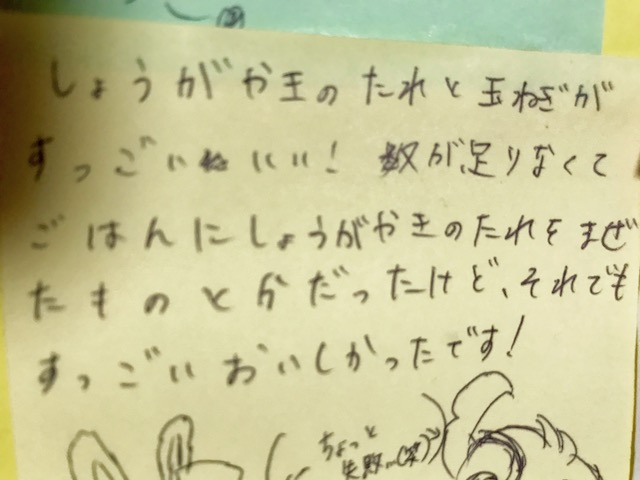 しょうがやきのたれと玉ねぎが
すっごいいい！数が足りなくて
ごはんにしょうがやきのたれをまぜ
たものとかだったけど、それでも
すっごいおいしかったです！
ちょっと
失敗…(笑)